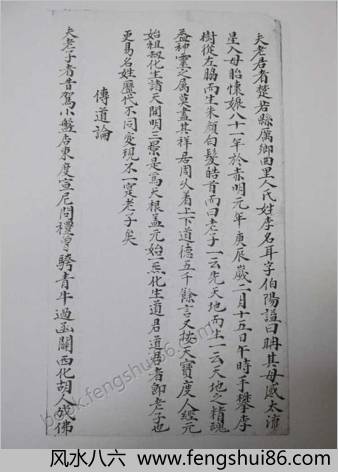 夫老君者楚苦縣厲鄉曲里人氏姓李名耳字伯陽謚曰聃其母感太沛
星入母胎懷娠八十一年於赤明元年庚辰歲二月十五日午時手攀李
樹從左脇而生朱顏白髮皓首而曰老子一云先天地而生一云天地之精魂
益神靈之屬莫盡其祥居周以著上下道德五千餘言又按天寶度人經元
始祖叔化生諸天開明三景是爲天根盖元始一炁化生道君道君者即老子也
更易名姓歷代不同变現不一寔老子矣
傳道論
夫老子者昔駕小盤古東度宣尼問禮曽騎青牛過函關西化胡人成佛
book.fengshui86.com
风水八六-fengshui86.com